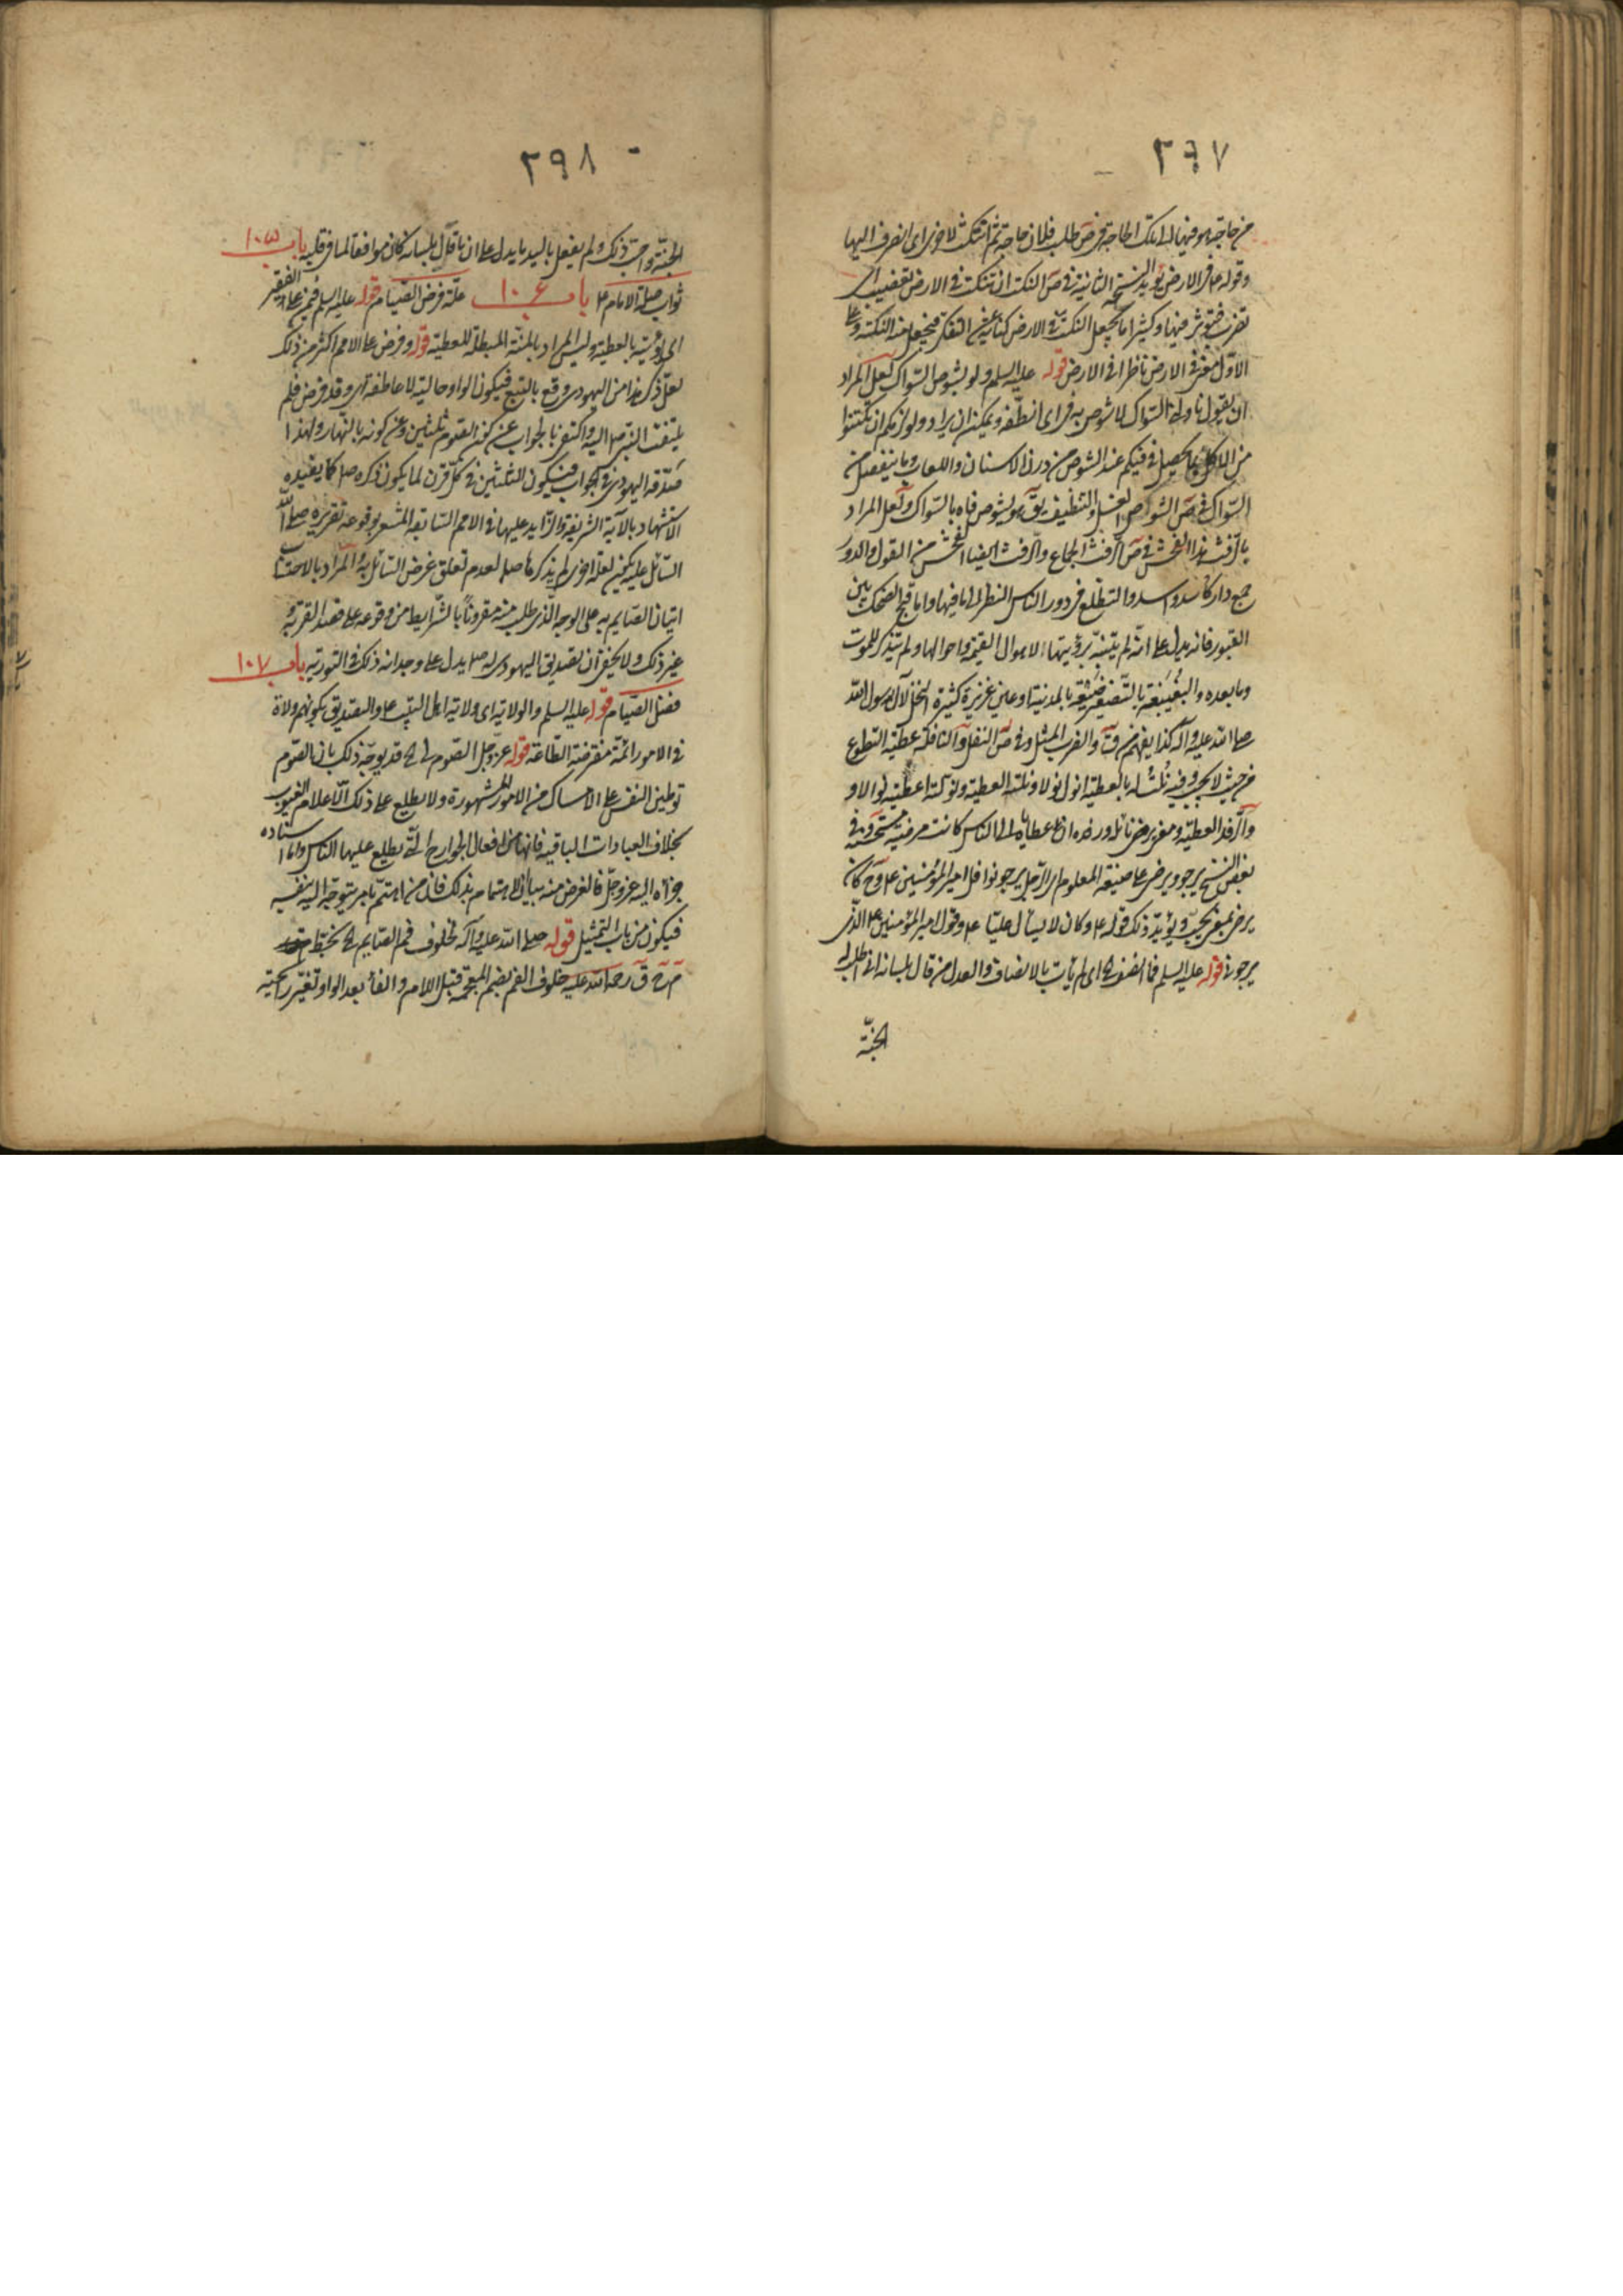 ٢٩٧
من حاجة هو فيها الى تلك الحاجة فرض طلب فلان حاجة ثم انتكث لاخرى اى انصرف اليها
وقوله على الارض يؤيد النسخة الثانية فى ص النكت ان تنكت فى الارض بقضيب اى
تضرب فتؤثر فيها وكثيرا ما يجعل النكت فى الارض كناية عن التفكر
الاول مغز فى الارض ناظرا فى الارض قوله عليه السلم ولو بشوص السواك لعل المراد
ان يقول ناولنى السواك لاشوص به فى اى انظفه ويمكن ان يراد ولو لزمكم ان تكتفوا
من الاكل بما يحصل فى فيكم عند الشوص من درن الاسنان واللعاب وما ينفصل من
السواك فى ص الشوص الغسل والتنظيف يق هو يشوص فاه بالسواك ولعل المراد
بالرفث هذا الفحش فى ص الرفث الجماع والرفث ايضا الفحش من القول والدور
جمع دار كاسد واسد والتطلع فى دور الناس النظر الى ما فيها واما قبح الضحك بين
القبور فانه يدل على انه لم يتنبه برؤيتها لاهوال القيمة واحوالها ولم يتذكر للموت
وما بعده والبغيبغة بالتصغير ضيعة بالمدينة او عين غزيرة كثيرة النخل لآل رسول الله
صلى الله عليه وآله كذا يفهم من ق والضرب المثل وفى ص النفل والنافلة عطية التطوع
من حيث لا يجب وفيه نلت له بالعطية انول نولا ونلته العطية ونولته اعطيته نوالا و
والرفد العطية
بعض النسخ يرجو ويرضى على صيغة المعلوم اى الرجل يرجو نوافل امير المؤمنين ع وح كان
يرضى بمعنى يحب ويؤيد ذلك قوله ع وكان لا يسأل عليا ع وقول امير المؤمنين ع الذى
يرجونى قوله عليه السلم فما انصفه اى لم يأت بالانصاف والعدل من قال بلسانه انى اطلب له
الجنة
٢٩٨
الجنة واحب ذلك ولم يفعل باليد ما يدل على ان ما قال بلسانه كان موافقا لما فى قلبه باب ١٠٥
ثواب صلة الامام ع باب ١٠٦ علة فرض الصيام قوله عليه السلم فيمن على الفقير
اى يؤتيه بالعطية وليس المراد بالمنة المبطلة للعطية قوله وفرض على الامم اكثر من ذلك
لعل ذكر هذا من اليهودى وقع بالتبع فيكون الواو حالية لا عاطفة اى وقد فرض فلم
يلتفت النبى ص اليه واكتفى بالجواب عن كون الصوم ثلثين وعن كونه بالنهار ولهذا
صدقه اليهودى فى الجواب فيكون للثلثين فى كل قرن لما يكون ذكره ص كما يفيده
الاستشهاد بالآية الشريفة والزايد عليها فى الامم السابقة المشعر بوقوعه تقريره صلى الله
السائل عليه يكون لعلة اخرى لم يذكرها ص لعدم تعلق غرض السائل به والمراد بالاحتساب
اتيان الصايم به على الوجه الذى طلب منه مقرونا بالشرايط من وقوعه على قصد القربة و
غير ذلك ولا يخفى ان تصديق اليهودى له ص يدل على وجدانه ذلك فى التورية باب ١٠٧
فضل الصيام قوله عليه السلم والولاية اى ولاية اهل البيت ع والتصديق بكونهم ولاة
فى الامور ائمة مفترضة الطاعة قوله عز وجل الصوم لى الخ قد يوجه ذلك بان الصوم
توطين النفس على الامساك عن الامور المشهورة ولا يطلع على ذلك الا علام الغيوب
بخلاف العبادات الباقية فانها من افعال الجوارح التى يطلع عليها الناس واما اسناده
جزاه اليه عز وجل فالغرض منه بيان الاهتمام بذلك فان من اهتم بامر يتوجه اليه بنفسه
فيكون من باب التمثيل قوله صلى الله عليه وآله لخلوف فم الصايم الخ بخط
م ح ق رحمة الله عليه خلوف الفم بضم المعجمة قبل اللام والفاء بعد الواو تغير رائحته